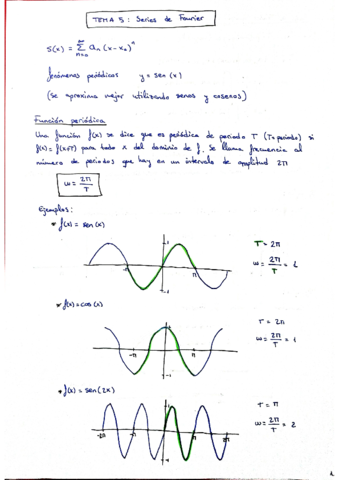 TEMA 5: Series de Fourier
S(x) = ∑_{n=0}^{∞} a_n (x-x_0)^n
fenómenos periódicos y = sen(x)
(se aproxima mejor utilizando senos y cosenos)
Función periódica
Una función f(x) se dice que es periódica de periodo T (T=periodo) si
f(x) = f(x+T) para todo x del dominio de f. Se llama frecuencia al
número de periodos que hay en un intervalo de amplitud 2π
ω = 2π/T
Ejemplos:
* f(x) = sen(x)
T = 2π
ω = 2π/T = 1
1
-π
π
-1
* f(x) = cos(x)
T = 2π
ω = 2π/T = 1
-π
π
-1
* f(x) = sen(2x)
T = π
ω = 2π/T = 2
-2π
-π
π
2π